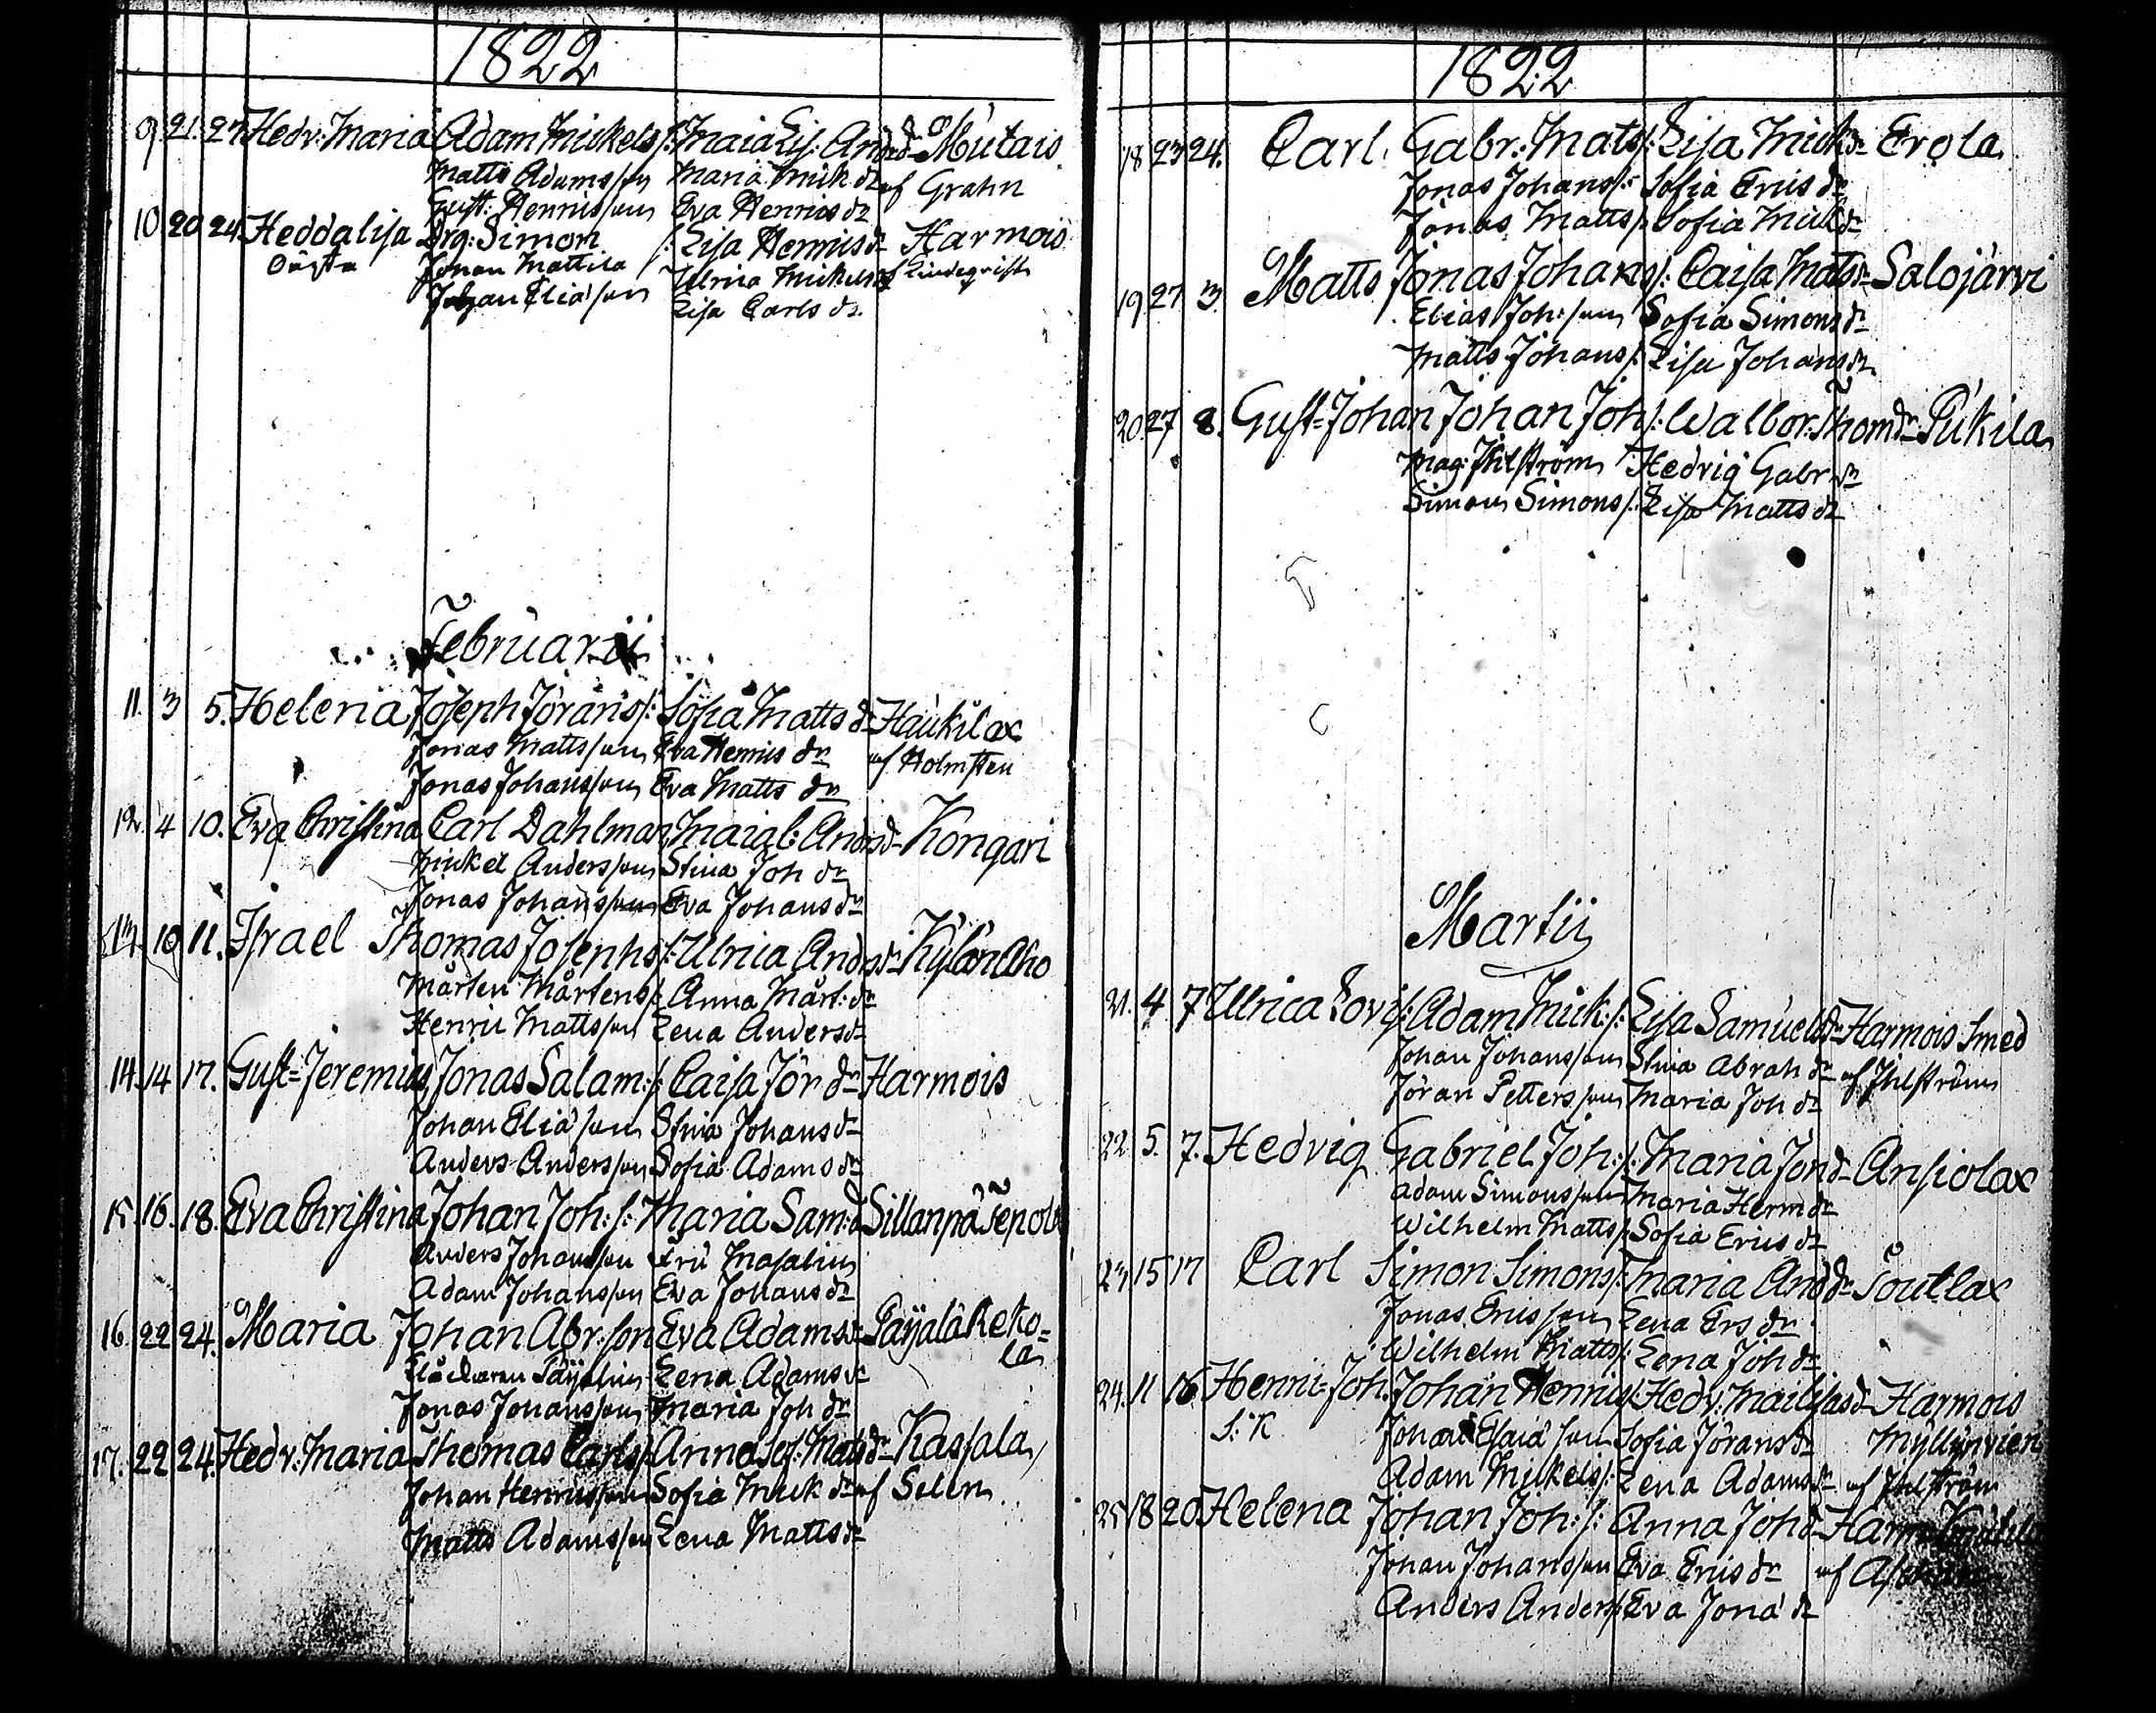 1822
9. 21. 27 Hedv: Maria Adam Mickels s: Maia Lis: And dr Mutais
Matts Adamsson Maria Mick dr af Grahn
Gust: Henricsson Eva Henrics dr
10 20 24 Hedda Lisa Drg: Simon s: Lisa Henrics dr Harmois
Oägta Johan Mattila Ulrica Mickels dr af Lindeqvist
Johan Eliasson Lisa Carls dr
Februarii
11. 3 5. Helena Joseph Jörans s: Sofia Matts dr Haukilax
Jonas Mattsson Eva Henrics dr af Holmsten
Jonas Johansson Eva Matts dr
12. 4 10. Eva Christina Carl Dahlman Maia C: And dr Kongari
Mickel Andersson Stina Joh dr
Jonas Johansson Eva Johans dr
13. 10 11. Israel Thomas Josephs s: Ulrica And dr Kylän Aho
Mårten Mårtens s: Anna Mårt: dr
Henric Mattsson Lena Anders dr
14. 14 17. Gust= Jeremias Jonas Salam: s: Caisa Jör dr Harmois
Johan Eliasson Stina Johans dr
Anders Andersson Sofia Adams dr
15. 16. 18. Eva Christina Johan Joh: s: Maria Sam: d Sillanpä
Anders Johansson Fru Masalin
Adam Johansson Eva Johans dr
16. 22 24. Maria Johan Abr: son Eva Adams dr Päyälä Reko=
la
Päyalin Lena Adams dr
Jonas Johansson Maria Joh dr
17. 22 24. Hedv: Maria Thomas Carls s: Anna Sof: Mats dr Kassala
Johan Henricsson Sofia Mick dr af Selen
Matts Adamsson Lena Matts dr
1822
18 23 24. Carl Gabr: Mats s: Lisa Mick dr Erola
Jonas Johans s: Sofia Erics dr
Jonas Matts s: Sofia Mick dr
19 27 3. Matts Jonas Johans s: Caisa Mats dr Salojärvi
Elias Joh: son Sofia Simons dr
Matts Johans s: Lisa Johans dr
20. 27 8. Gust= Johan Johan Joh s: Walbor: Thom dr Pukila
Mag: Ihlström Hedvig Gabr dr
Simon Simons s: Lisa Matts dr
Martii
21. 4. 7 Ulrica Lovis: Adam Mick: s: Lisa Samuels dr Harmois Smed
Johan Johansson Stina Abrah dr af Ihlström
Jöran Pettersson Maria Joh dr
22. 5. 7. Hedvig Gabriel Joh: s: Maria Jon d Ansiolax
Adam Simonsson Maria Herm dr
Wilhelm Matts s: Sofia Erics dr
23 15 17 Carl Simon Simons s: Maria And dr Soutlax
Jonas Ericsson Lena Ers dr
Wilhelm Matts s: Lena Joh dr
24. 11 16. Henric= Joh. Johan Henrics s: Hedv: Mai Esias d Harmois
S: K Johan Esaiasson Sofia Jörans dr Myllynvieri
Adam Mickels s: Lena Adams dr af Ihlström
25 18 20 Helena Johan Joh: s: Anna Joh d Harm:
Johan Johansson Eva Erics dr af
Anders Anders s: Eva Jona dr